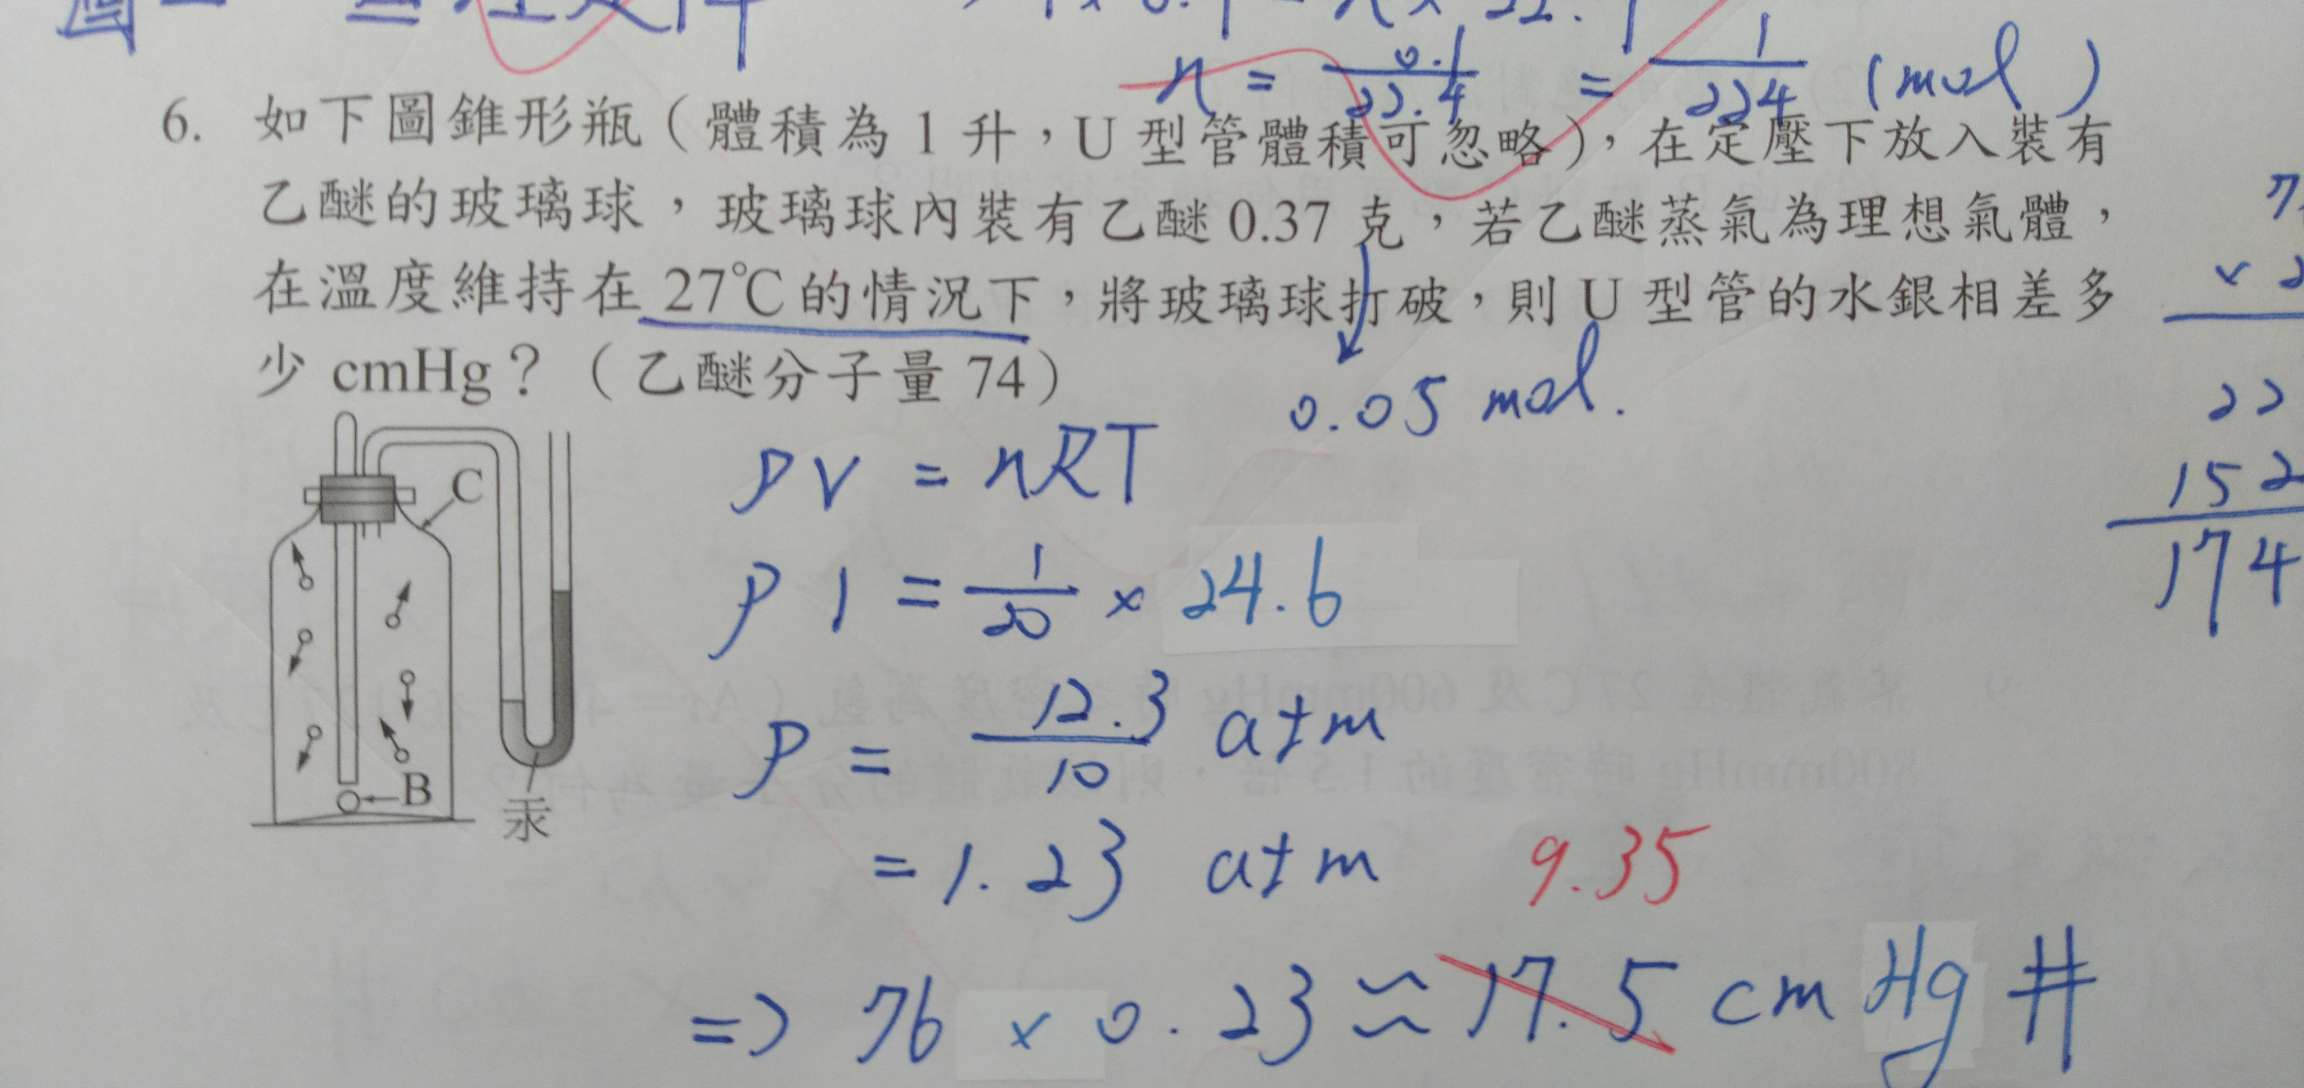 n = 0.1/22.4 = 1/224 (mol)
6. 如下圖錐形瓶（體積為 1 升，U 型管體積可忽略），在定壓下放入裝有
乙醚的玻璃球，玻璃球內裝有乙醚 0.37 克，若乙醚蒸氣為理想氣體，
在溫度維持在 27℃的情況下，將玻璃球打破，則 U 型管的水銀相差多
少 cmHg？（乙醚分子量 74）
0.05 mol.
C
B
汞
PV = nRT
P 1 = 1/20 × 24.6
P = 12.3/10 atm
= 1.23 atm
9.35
=> 76 × 0.23 ≈ 17.5 cm Hg #
22
152
174